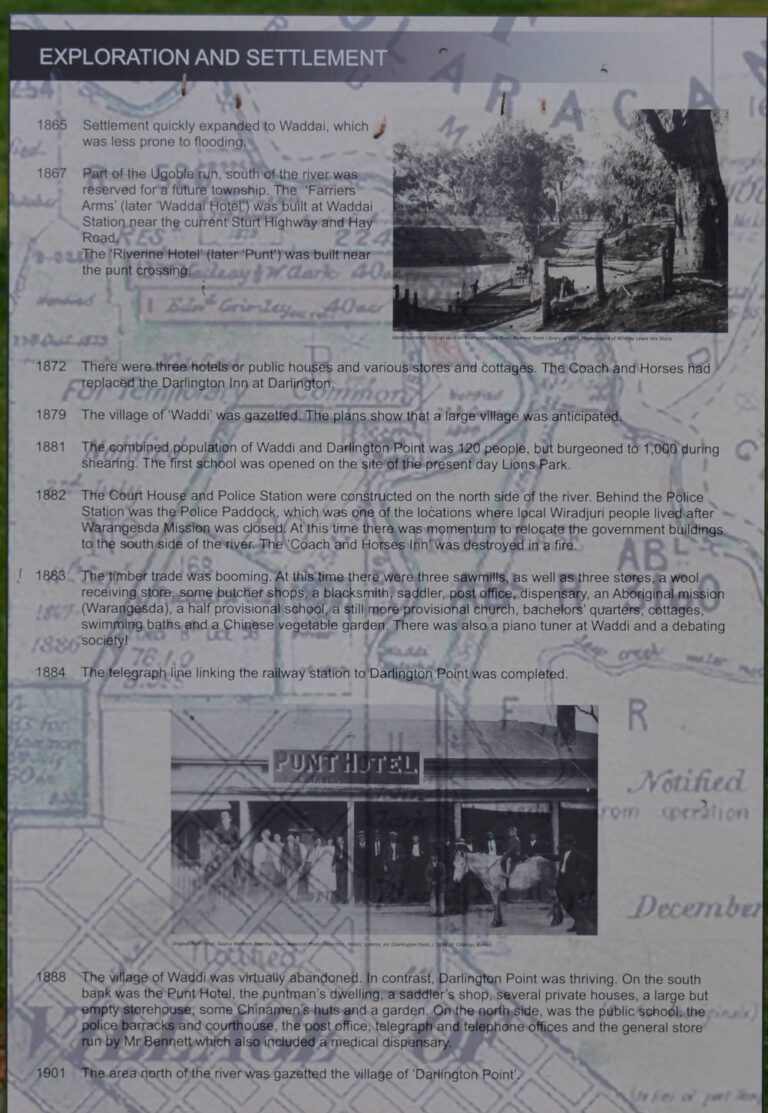 EXPLORATION AND SETTLEMENT
1865 Settlement quickly expanded to Waddai, which
was less prone to flooding.
1867 Part of the Ugoble run, south of the river was
reserved for a future township. The 'Farriers
Arms' (later 'Waddai Hotel') was built at Waddai
Station near the current Sturt Highway and Hay
Road.
The 'Riverine Hotel' (later 'Punt') was built near
the punt crossing.
1872 There were three hotels or public houses and various stores and cottages. The Coach and Horses had
replaced the Darlington Inn at Darlington.
1879 The village of 'Waddi' was gazetted. The plans show that a large village was anticipated.
1881 The combined population of Waddi and Darlington Point was 120 people, but burgeoned to 1,000 during
shearing. The first school was opened on the site of the present day Lions Park.
1882 The Court House and Police Station were constructed on the north side of the river. Behind the Police
Station was the Police Paddock, which was one of the locations where local Wiradjuri people lived after
Warangesda Mission was closed. At this time there was momentum to relocate the government buildings
to the south side of the river. The 'Coach and Horses Inn' was destroyed in a fire.
1883 The timber trade was booming. At this time there were three sawmills, as well as three stores, a wool
receiving store, some butcher shops, a blacksmith, saddler, post office, dispensary, an Aboriginal mission
(Warangesda), a half provisional school, a still more provisional church, bachelors' quarters, cottages,
swimming baths and a Chinese vegetable garden. There was also a piano tuner at Waddi and a debating
society!
1884 The telegraph line linking the railway station to Darlington Point was completed.
F R
PUNT HOTEL
Notified
from operation
December
Notified
1888 The village of Waddi was virtually abandoned. In contrast, Darlington Point was thriving. On the south
bank was the Punt Hotel, the puntman's dwelling, a saddler's shop, several private houses, a large but
empty storehouse, some Chinamen's huts and a garden. On the north side, was the public school, the
police barracks and courthouse, the post office, telegraph and telephone offices and the general store
run by Mr Bennett which also included a medical dispensary.
1901 The area north of the river was gazetted the village of 'Darlington Point'.